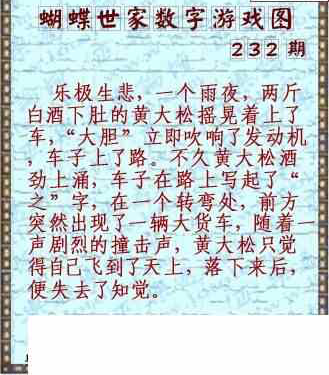 蝴蝶世家数字游戏图
232期
乐极生悲，一个雨夜，两斤
白酒下肚的黄大松摇晃着上了
车，“大胆”立即吹响了发动机
，车子上了路。不久黄大松酒
劲上涌，车子在路上写起了“
之”字，在一个转弯处，前方
突然出现了一辆大货车，随着一
声剧烈的撞击声，黄大松只觉
得自己飞到了天上，落下来后，
便失去了知觉。